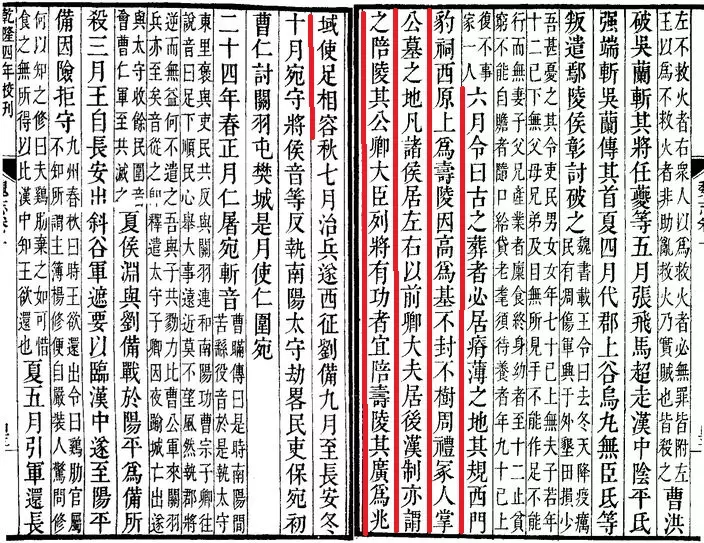 左不救火者右衆人以爲救火者必無罪皆附左
王以爲不救火者非助亂救火乃實賊也皆殺之
曹洪
破吳蘭斬其將任夔等五月張飛馬超走漢中陰平氐
强端斬吳蘭傳其首夏四月代郡上谷烏丸無臣氐等
叛遣鄢陵侯彰討破之
魏書載王令曰去冬天降疫癘
民有凋傷軍興于外墾田損少
吾甚憂之其令吏民男女女年七十已上無夫子若年
十二已下無父母兄弟及目無所見手不能作足不能
行而無妻子父兄產業者廩食終身幼者至十二止貧
窮不能自贍者隨口給貸老耄須待養者年九十已上
復不事
家一人
六月令曰古之葬者必居瘠薄之地其規西門
豹祠西原上爲壽陵因高爲基不封不樹周禮冢人掌
公墓之地凡諸侯居左右以前卿大夫居後漢制亦謂
之陪陵其公卿大臣列將有功者宜陪壽陵其廣爲兆
域使足相容秋七月治兵遂西征劉備九月至長安冬
十月宛守將侯音等反執南陽太守劫略吏民保宛初
曹仁討關羽屯樊城是月使仁圍宛
二十四年春正月仁屠宛斬音
曹瞞傳曰是時南陽間
苦繇役音於是執太守
東里褒與吏民共反與關羽連和南陽功曹宗子卿往
說音曰足下順民心舉大事遠近莫不望風然執郡將
逆而無益何不遣之吾與子共戮力比曹公軍來關羽
兵亦至矣音從之即釋遣太守子卿因夜踰城亡出遂
與太守收餘民圍音
會曹仁軍至共滅之
夏侯淵與劉備戰於陽平爲備所
殺三月王自長安出斜谷軍遮要以臨漢中遂至陽平
備因險拒守
九州春秋曰時王欲還出令曰雞肋官屬
不知所謂主簿楊修便自嚴裝人驚問修
何以知之修曰夫雞肋棄之如可惜
食之無所得以比漢中知王欲還也
夏五月引軍還長
乾隆四年校刊